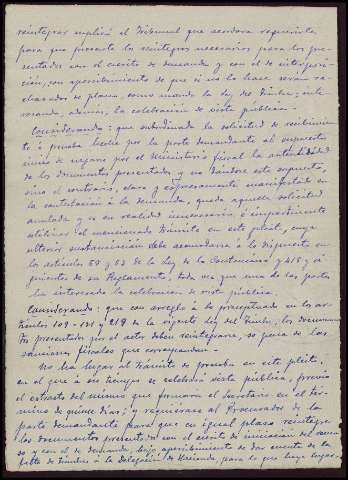 reintegrar suplicó al Tribunal que acordara requerirle
para que presente los reintegros necesarios para los pre-
sentados con el escrito de demanda y con el de interposi-
ción, con apercibimiento de que si no lo hace serán re-
chazados de plano, como manda la Ley del Timbre; inte-
resando, además, la celebración de vista pública.-
Considerando: que subordinada la solicitud de recibimien-
to á prueba hecha por la parte demandante al supuesto
único de negarse por el Ministerio fiscal la autenticidad
de los documentos presentados y no dándose este supuesto,
sino el contrario, clara y expresamente manifestado en
la contestación á la demanda, queda aquella solicitud
anulada y es en realidad innecesario é impertinente
utilizar el mencionado trámite en este pleito, cuya
ulterior sustanciación debe acomodarse á lo dispuesto en
los artículos 58 y 62 de la Ley de lo Contencioso y 418, si
guientes de su Reglamento, toda vez que una de las partes
ha interesado la celebración de vista pública.
Considerando: que con arreglo á lo preceptuado en los ar-
tículos 109 - 131 y 219 de la vigente Ley del Timbre, los documen
tos presentados por el actor deben reintegrarse, so pena de las
sanciones fiscales que correspondan.-
No ha lugar al trámite de prueba en este pleito,
en el que á su tiempo se celebrará vista pública, previo
el extracto del mismo que formará el Secretario en el tér-
mino de quince días; y requiérase al Procurador de la
parte demandante para que en igual plazo reintegre
los documentos presentados con el escrito de iniciación del recur
so y con el de demanda, bajo apercibimiento de dar cuenta de la
falta de timbre á la Delegación de Hacienda, para lo que haya lugar.-